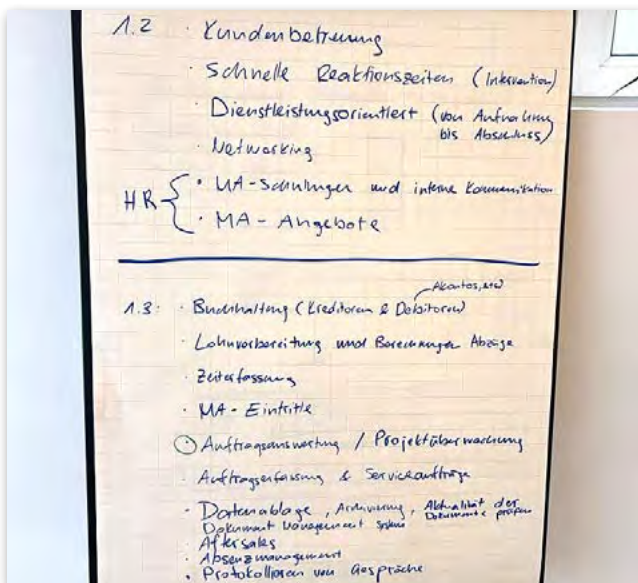 1.2 · Kundenbetreuung
· Schnelle Reaktionszeiten (Intervention)
· Dienstleistungsorientiert (von Aufnahme bis Abschluss)
· Networking
HR { · MA-Schulungen und interne Kommunikation
· MA - Angebote
1.3: · Buchhaltung (Kreditoren & Debitoren)
· Lohnvorbereitung und Berechnungen Abzüge
· Zeiterfassung
· MA - Eintritte
· Auftragsauswertung / Projektüberwachung
· Auftragserfassung & Serviceaufträge
· Datenablage, Archivierung, Aktualität der Dokumente prüfen
Dokument Management System
· Aftersales
· Absenzmanagement
· Protokollieren von Gespräche